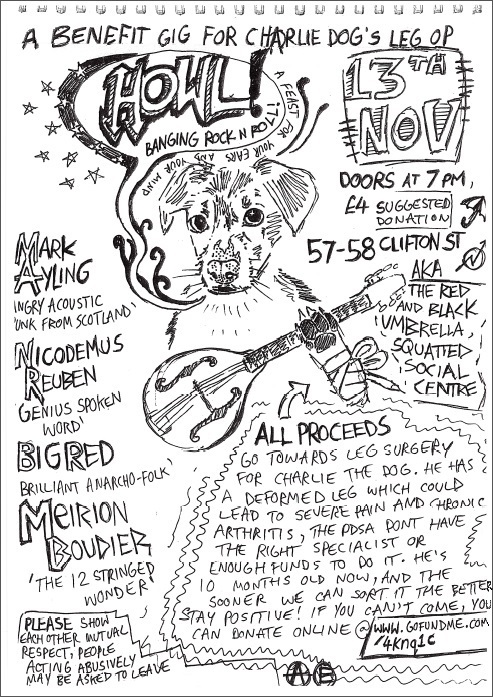 A BENEFIT GIG FOR CHARLIE DOG'S LEG OP
HOWL!
BANGING ROCK N ROLL!
A FEAST FOR YOUR EARS AND YOUR MIND
13TH
NOV
DOORS AT 7 PM,
£4 SUGGESTED
DONATION
57-58 CLIFTON ST
AKA
THE RED
AND BLACK
UMBRELLA,
SQUATTED
SOCIAL
CENTRE
MARK
AYLING
'NGRY ACOUSTIC
'UNK FROM SCOTLAND'
NICODEMUS
REUBEN
'GENIUS SPOKEN
WORD'
BIG RED
BRILLIANT ANARCHO-FOLK'
MEIRION
BOUDIER
'THE 12 STRINGED
WONDER'
ALL PROCEEDS
GO TOWARDS LEG SURGERY
FOR CHARLIE THE DOG. HE HAS
A DEFORMED LEG WHICH COULD
LEAD TO SEVERE PAIN AND CHRONIC
ARTHRITIS, THE PDSA DONT HAVE
THE RIGHT SPECIALIST OR
ENOUGH FUNDS TO DO IT. HE'S
10 MONTHS OLD NOW, AND THE
SOONER WE CAN SORT IT THE BETTER
STAY POSITIVE! IF YOU CAN'T COME, YOU
CAN DONATE ONLINE @ WWW.GOFUNDME.COM
/4knq1c
PLEASE SHOW
EACH OTHER MUTUAL
RESPECT, PEOPLE
ACTING ABUSIVELY
MAY BE ASKED TO LEAVE
A E